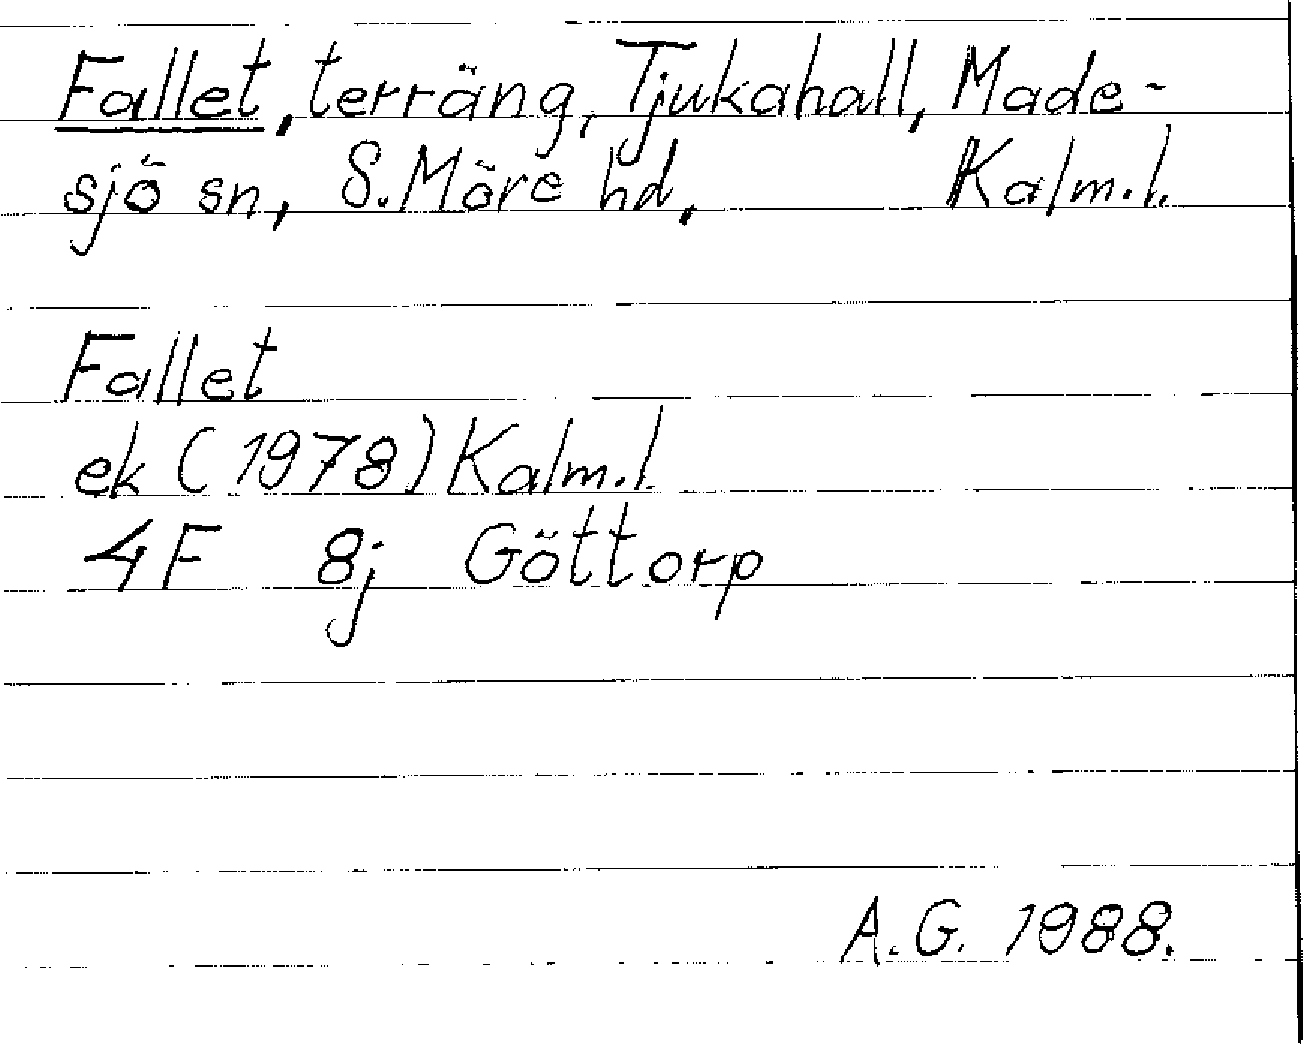 Fallet, terräng, Tjukahall, Made-
sjö sn, S. Möre hd, Kalm. l.
Fallet
ek (1978) Kalm. l.
4F 8j Göttorp
A. G. 1988.